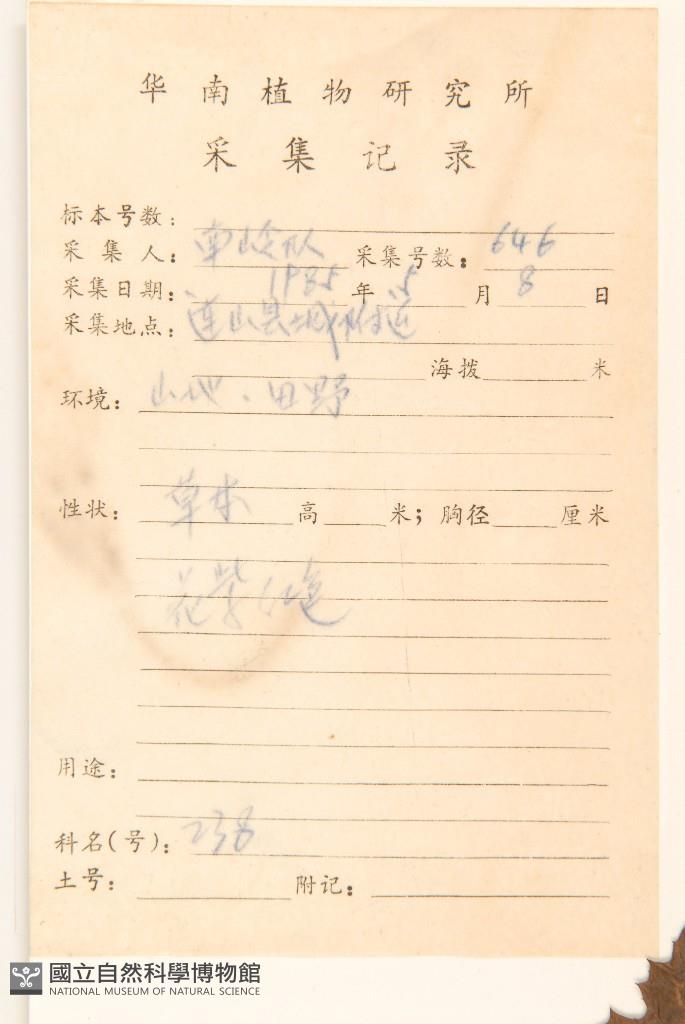 华南植物研究所
采集记录
标本号数:
采集人: 南岭队 采集号数: 646
采集日期: 1985 年 5 月 8 日
采集地点: 连山县城附近
海拨 米
环境: 山地、田野
性状: 草本 高 米; 胸径 厘米
花紫红色
用途:
科名(号): 238
土号: 附记:
國立自然科學博物館
NATIONAL MUSEUM OF NATURAL SCIENCE